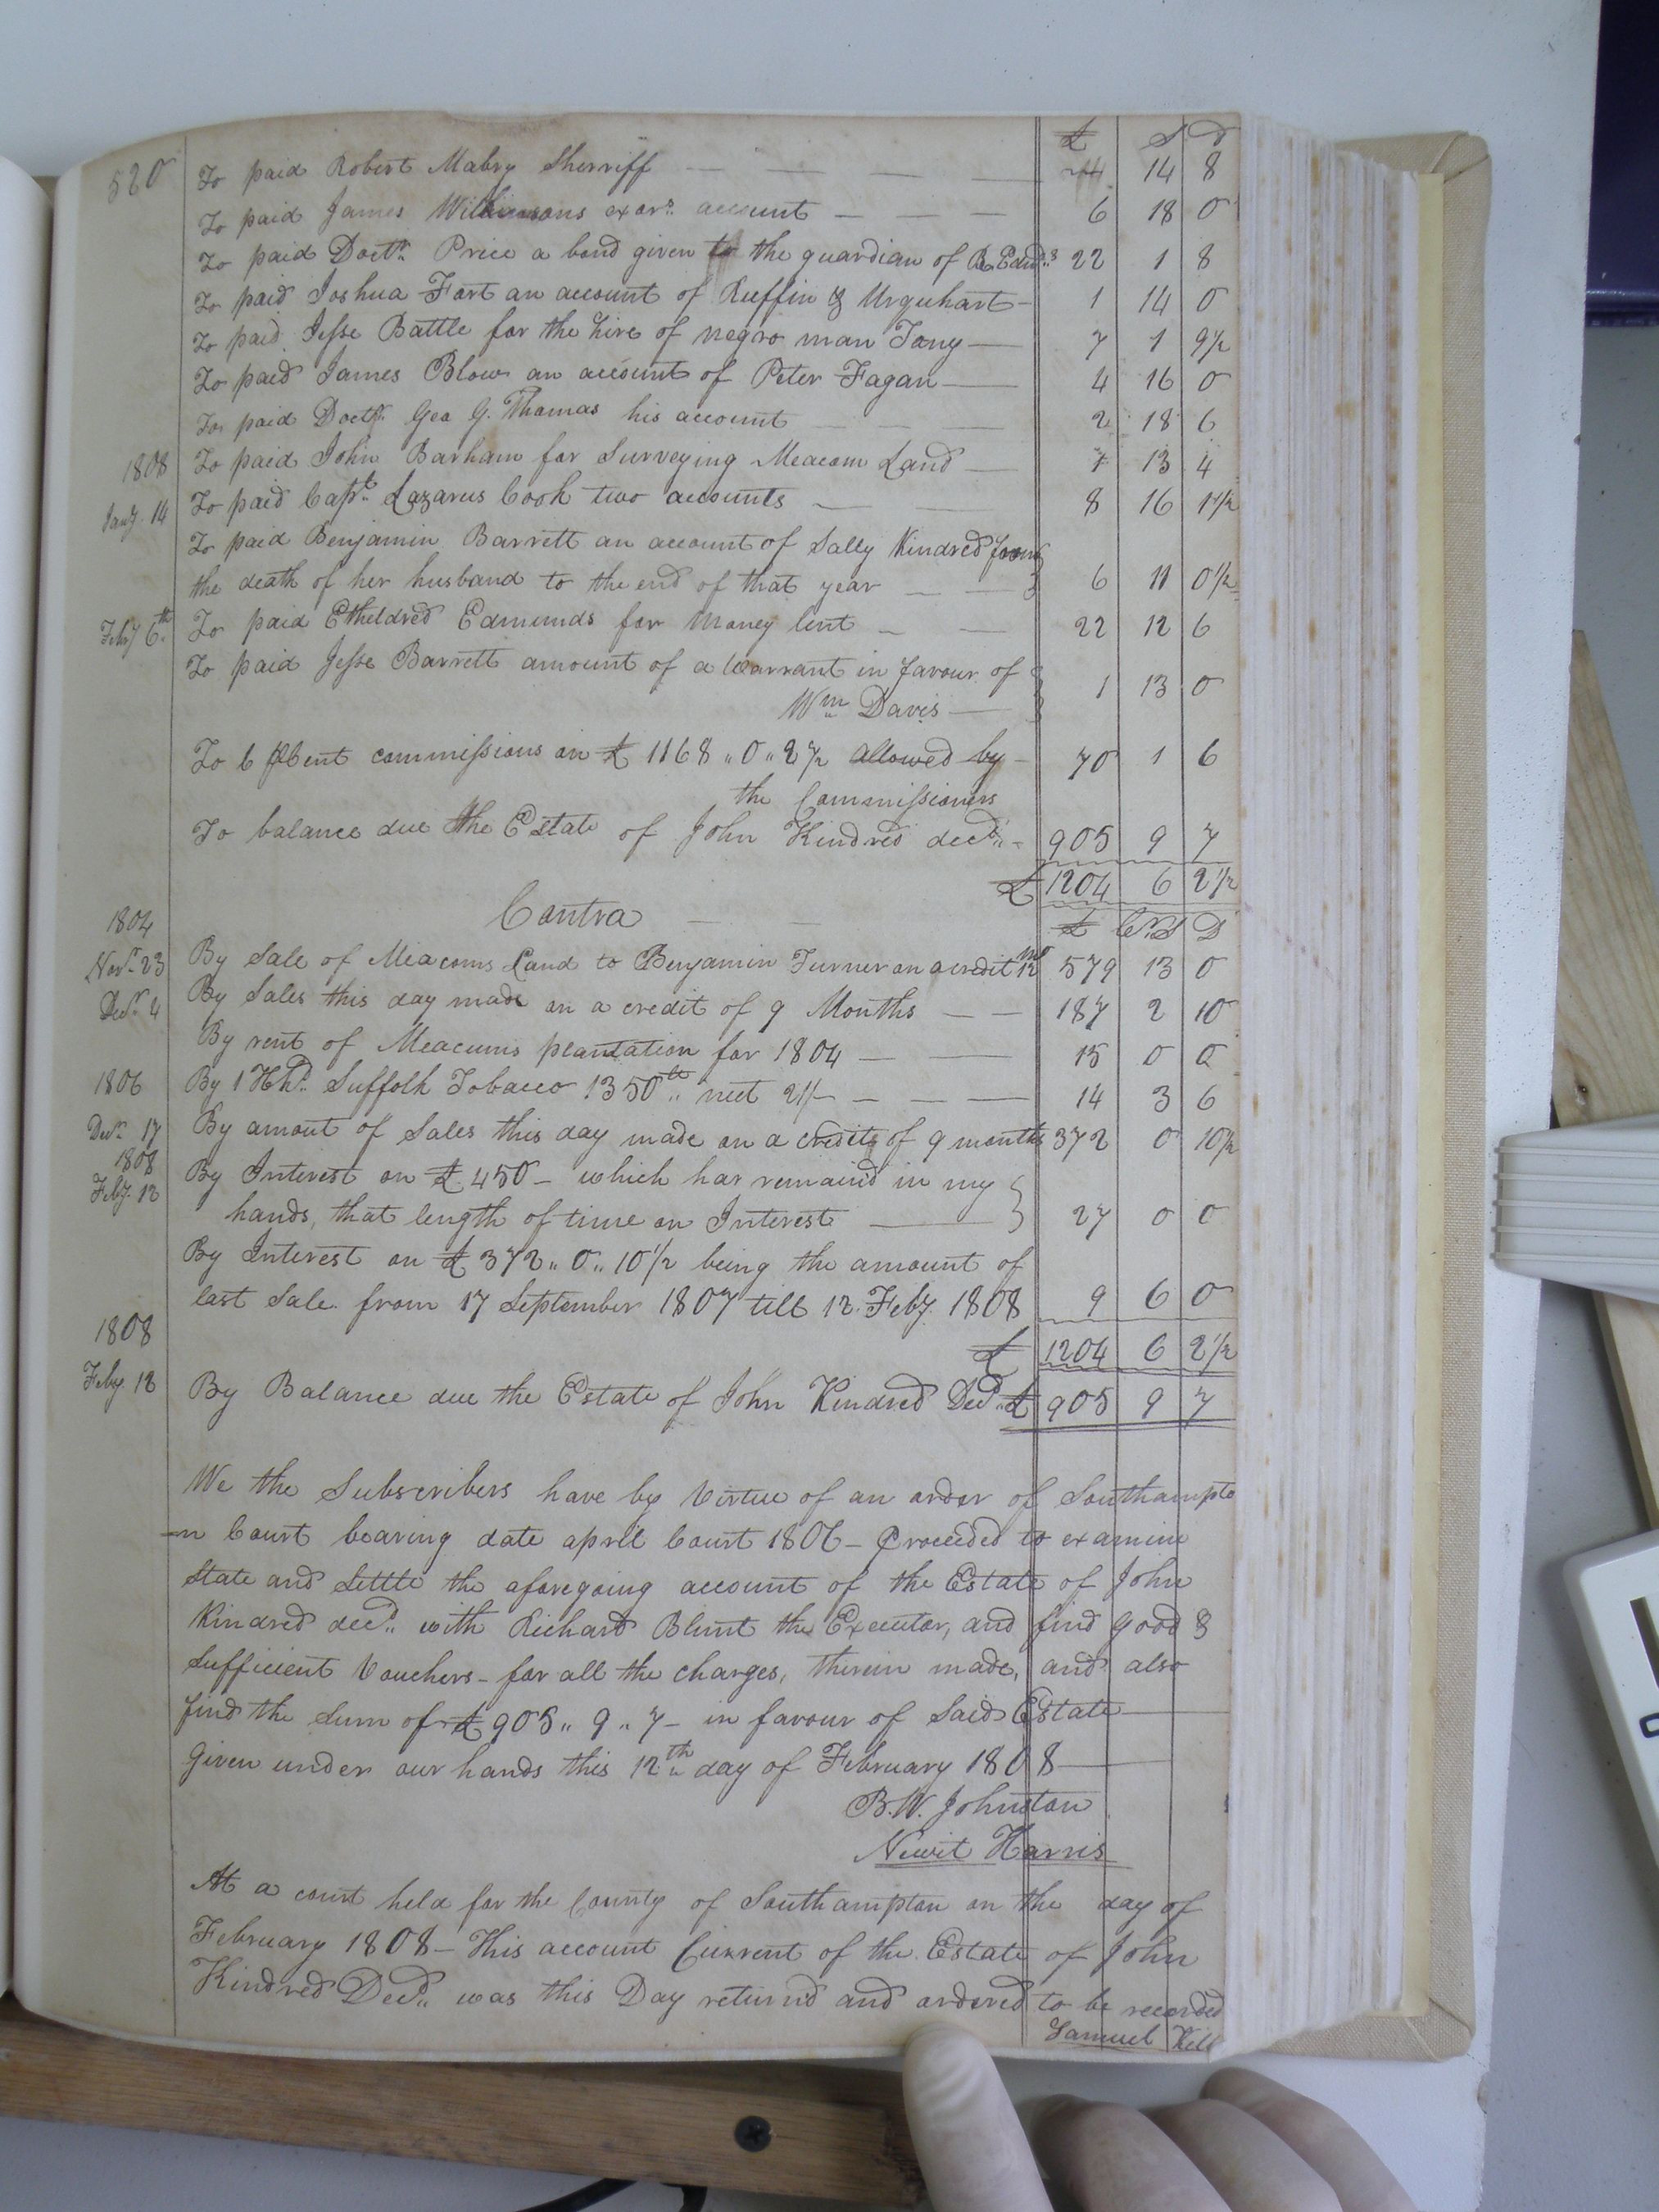 520
£ S D
To paid Robert Mabry Sherriff 14 8
To paid James Wilkinsons exors. account 6 18 0
To paid Doctr. Price a bond given to the guardian of R. Edmds 22 1 8
To paid Joshua Fort an account of Ruffin & Urquhart 1 14 0
To paid Jesse Battle for the hire of negro man Tony 7 1 9½
To paid James Blow an account of Peter Fagan 4 16 0
To paid Doctr. Geo G. Thomas his account 2 18 6
1808 To paid John Barham for Surveying Meacom Land 13 4
Jany. 14 To paid Capt. Lazarus Cook two accounts 8 16 1½
To paid Benjamin Barrett an account of Sally Kindred from
the death of her husband to the end of that year 6 11 0½
Feby 6th. To paid Etheldred Edmunds for Money lent 22 12 6
To paid Jesse Barrett amount of a Warrant in favour of
Wm Davis 1 13 0
To 6 PCent commissions on £ 1168 " 0 " 2½ allowed by 70 1 6
the Commissioners
To balance due the Estate of John Kindred decd. 905 9 7
£ 1204 6 2½
Contra £ Cr. S D
1804
Novr. 23 By Sale of Meacoms Land to Benjamin Turner on a credit 12 mo 579 13 0
Decr. 4 By Sales this day made on a credit of 9 Months 187 2 10
By rent of Meacums plantation for 1804 15 0 0
1806 By 1 Hhd. Suffolk Tobacco 1350 lb. net 21/- 14 3 6
Decr. 17 By amout of Sales this day made on a credits of 9 months 372 0 10½
1808
Feby. 12 By Interest on £ 450 - which has remaind in my
hands, that length of time on Interest 27 0 0
By Interest on £ 372 " 0 " 10½ being the amount of
last Sale. from 17 September 1807 till 12. Feby. 1808 9 6 0
1808 £ 1204 6 2½
Feby. 12 By Balance due the Estate of John Kindred Decd. £ 905 9 7
We the Subscribers have by Virtue of an order of Southampto
-n Court bearing date april Court 1806 - Proceeded to examine
State and Settle the aforegoing account of the Estate of John
Kindred decd. with Richard Blunt the Executor, and find good &
sufficient Vouchers - for all the charges, therein made, and also
find the Sum of £ 905 " 9 " 7 - in favour of Said Estate
Given under our hands this 12th day of February 1808
B. W. Johnston
Newit Harris
At a court held for the County of Southampton on the day of
February 1808 - This account Current of the Estate of John
Kindred Decd. was this Day returnd and ordered to be recorded
Samuel Kell